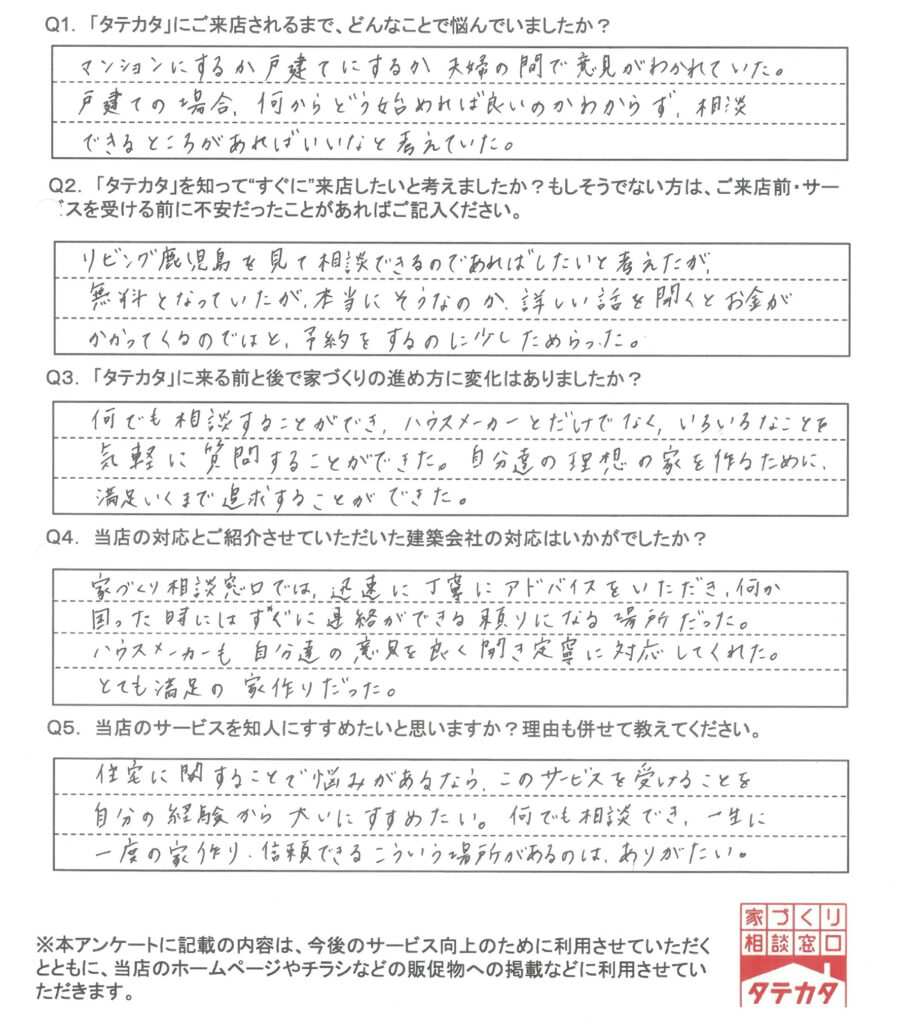 Q1. 「タテカタ」にご来店されるまで、どんなことで悩んでいましたか？
マンションにするか戸建てにするか 夫婦の間で意見がわかれていた。
戸建ての場合、何からどう始めれば良いのかわからず、相談
できるところがあればいいなと考えていた。
Q2. 「タテカタ」を知って“すぐに”来店したいと考えましたか？もしそうでない方は、ご来店前・サー
ビスを受ける前に不安だったことがあればご記入ください。
リビング鹿児島を見て相談できるのであればしたいと考えたが、
無料となっていたが、本当にそうなのか、詳しい話を聞くとお金が
かかってくるのではと、予約をするのに少しためらった。
Q3. 「タテカタ」に来る前と後で家づくりの進め方に変化はありましたか？
何でも相談することができ、ハウスメーカーとだけでなく、いろいろなことを
気軽に質問することができた。自分達の理想の家を作るために、
満足いくまで追求することができた。
Q4. 当店の対応とご紹介させていただいた建築会社の対応はいかがでしたか？
家づくり相談窓口では、迅速に丁寧にアドバイスをいただき、何か
困った時にはすぐに連絡ができる頼りになる場所だった。
ハウスメーカーも自分達の意見を良く聞き定寧に対応してくれた。
とても満足の家作りだった。
Q5. 当店のサービスを知人にすすめたいと思いますか？理由も併せて教えてください。
住宅に関することで悩みがあるなら、このサービスを受けることを
自分の経験から大いにすすめたい。何でも相談でき、一生に
一度の家作り、信頼できるこういう場所があるのは、ありがたい。
※本アンケートに記載の内容は、今後のサービス向上のために利用させていただく
とともに、当店のホームページやチラシなどの販促物への掲載などに利用させてい
ただきます。
家づくり
相談窓口
タテカタ